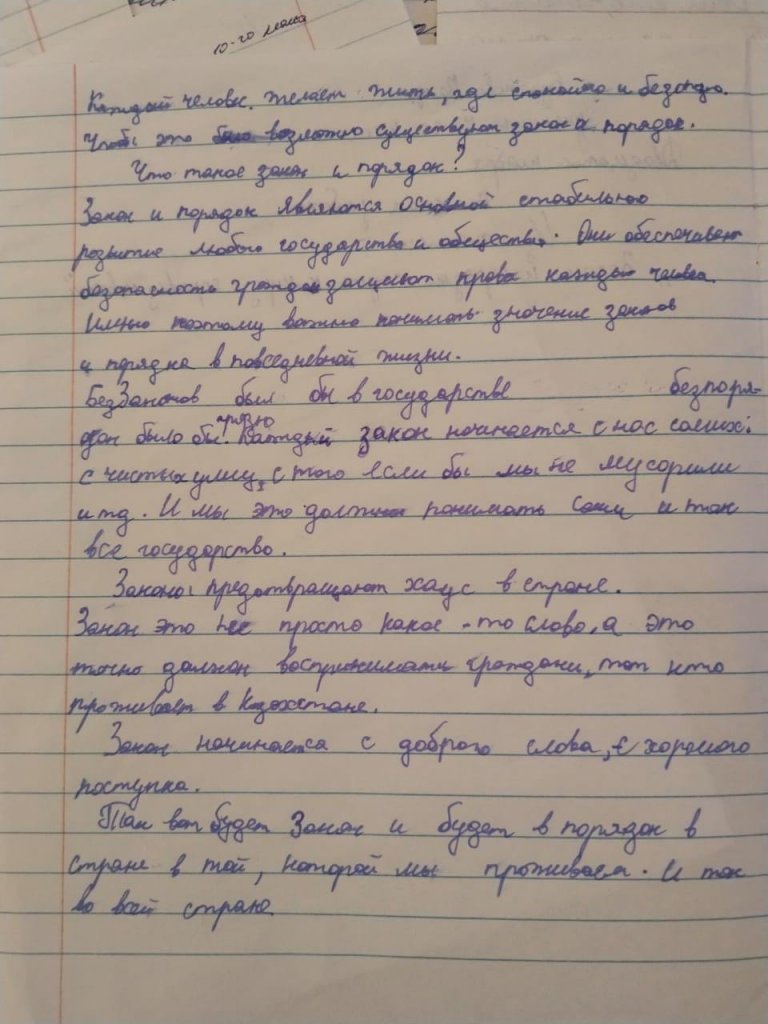 10-го
Каждый человек желает жить, где спокойно и
Чтобы это было возможно существуют закон и порядок.
Что такое закон и порядок?
Закон и порядок являются основной стабильно
развитие любого государства и общества. Они обеспечивают
безопасность граждан защищают права каждого человека.
Именно поэтому важно понимать значение законов
и порядка в повседневной жизни.
Без Законов был бы в государстве безпоря-
док было бы. Каждый закон начинается с нас самих:
с чистых улиц, с того если бы мы не мусорили
и тд. И мы это должны понимать сами и так
все государство.
Законы предотвращают хаус в стране.
Закон это не просто какое-то слово, а это
точно должен воспринимать граждани, тот кто
проживает в Казахстане.
Закон начинается с доброго слова, с хорошого
поступка.
Так вот будет Закон и будет в порядок в
стране в той, которой мы проживаем. И так
во всей стране